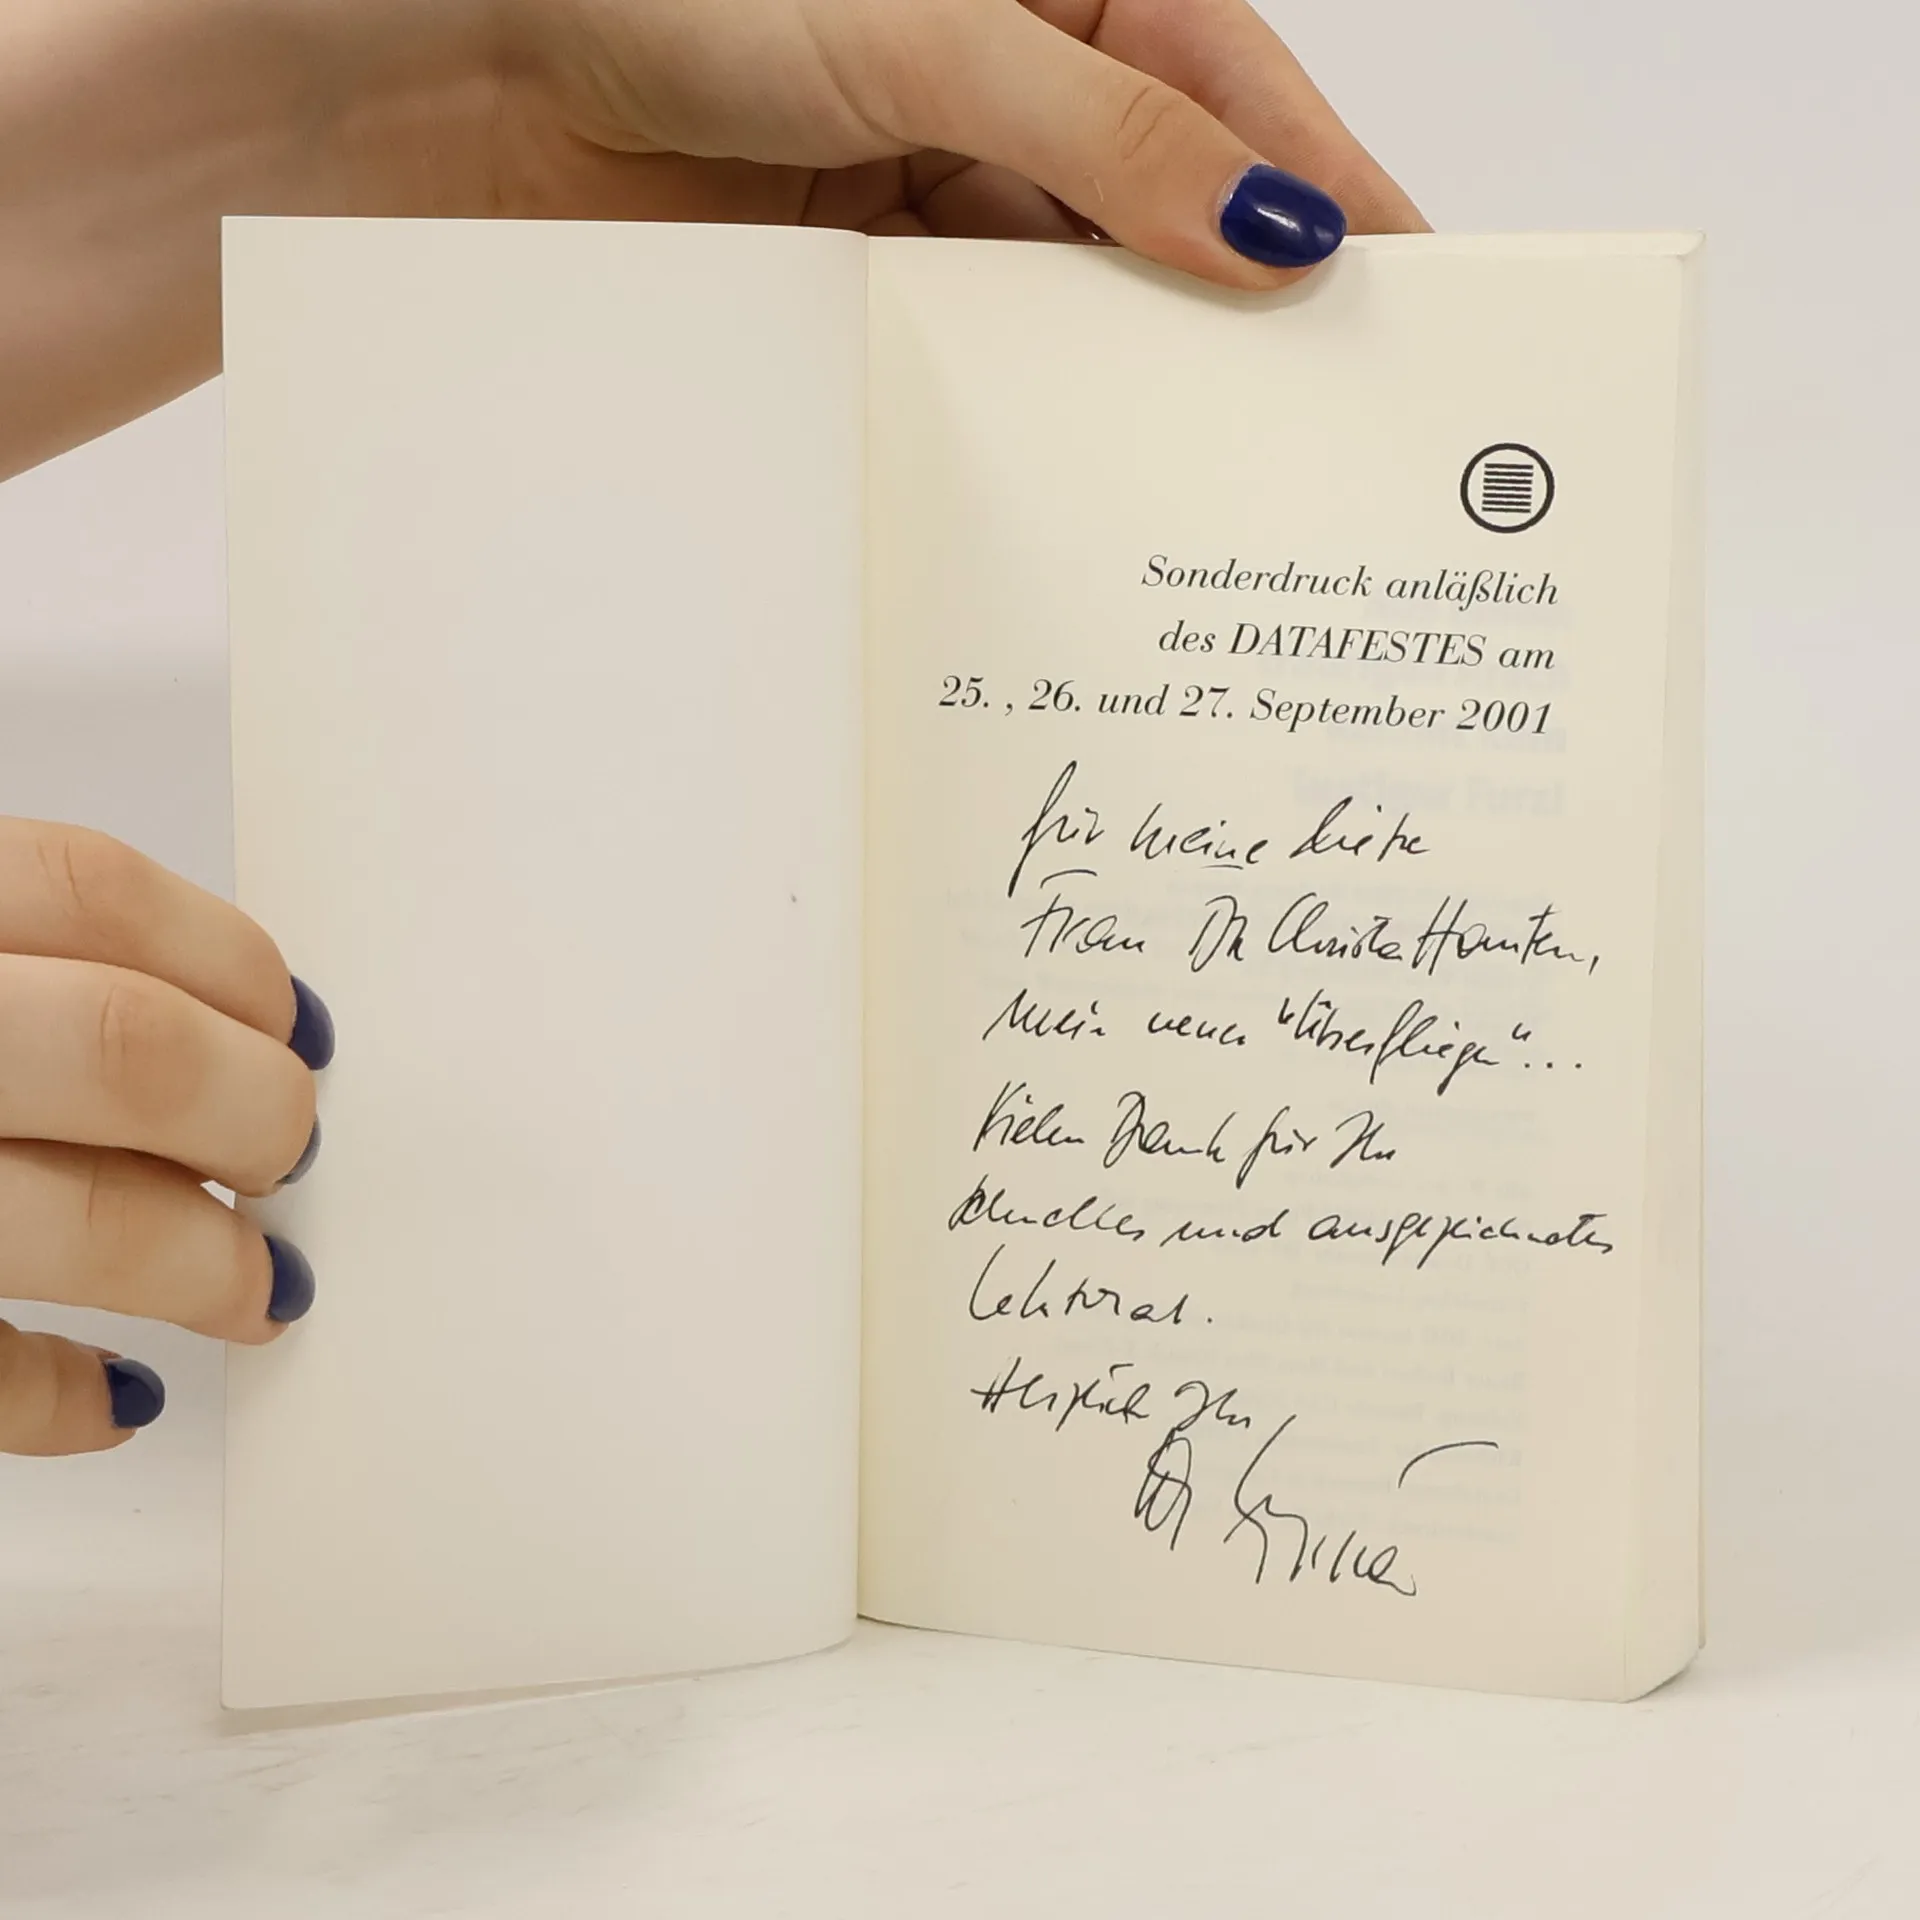 Sonderdruck anläßlich
des DATAFESTES am
25. , 26. und 27. September 2001
für meine liebe
Frau Dr. Christa
mein neuer "Überflieger"...
Vielen Dank für Ihr
schnelles und ausgezeichnetes
Lektorat.
Herzlich Ihr